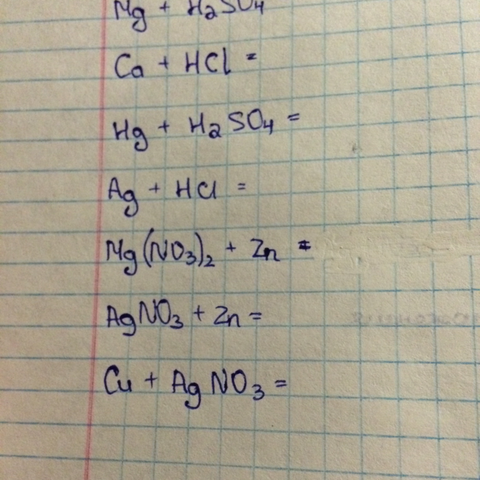 Mg + H₂SO₄
Ca + HCl =
Hg + H₂SO₄ =
Ag + HCl =
Mg(NO₃)₂ + Zn =
AgNO₃ + Zn =
Cu + AgNO₃ =